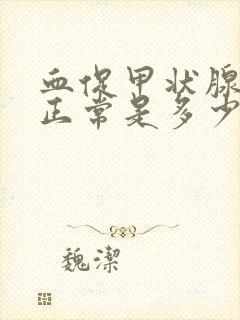 血促甲状腺
正常是多少
魏潔